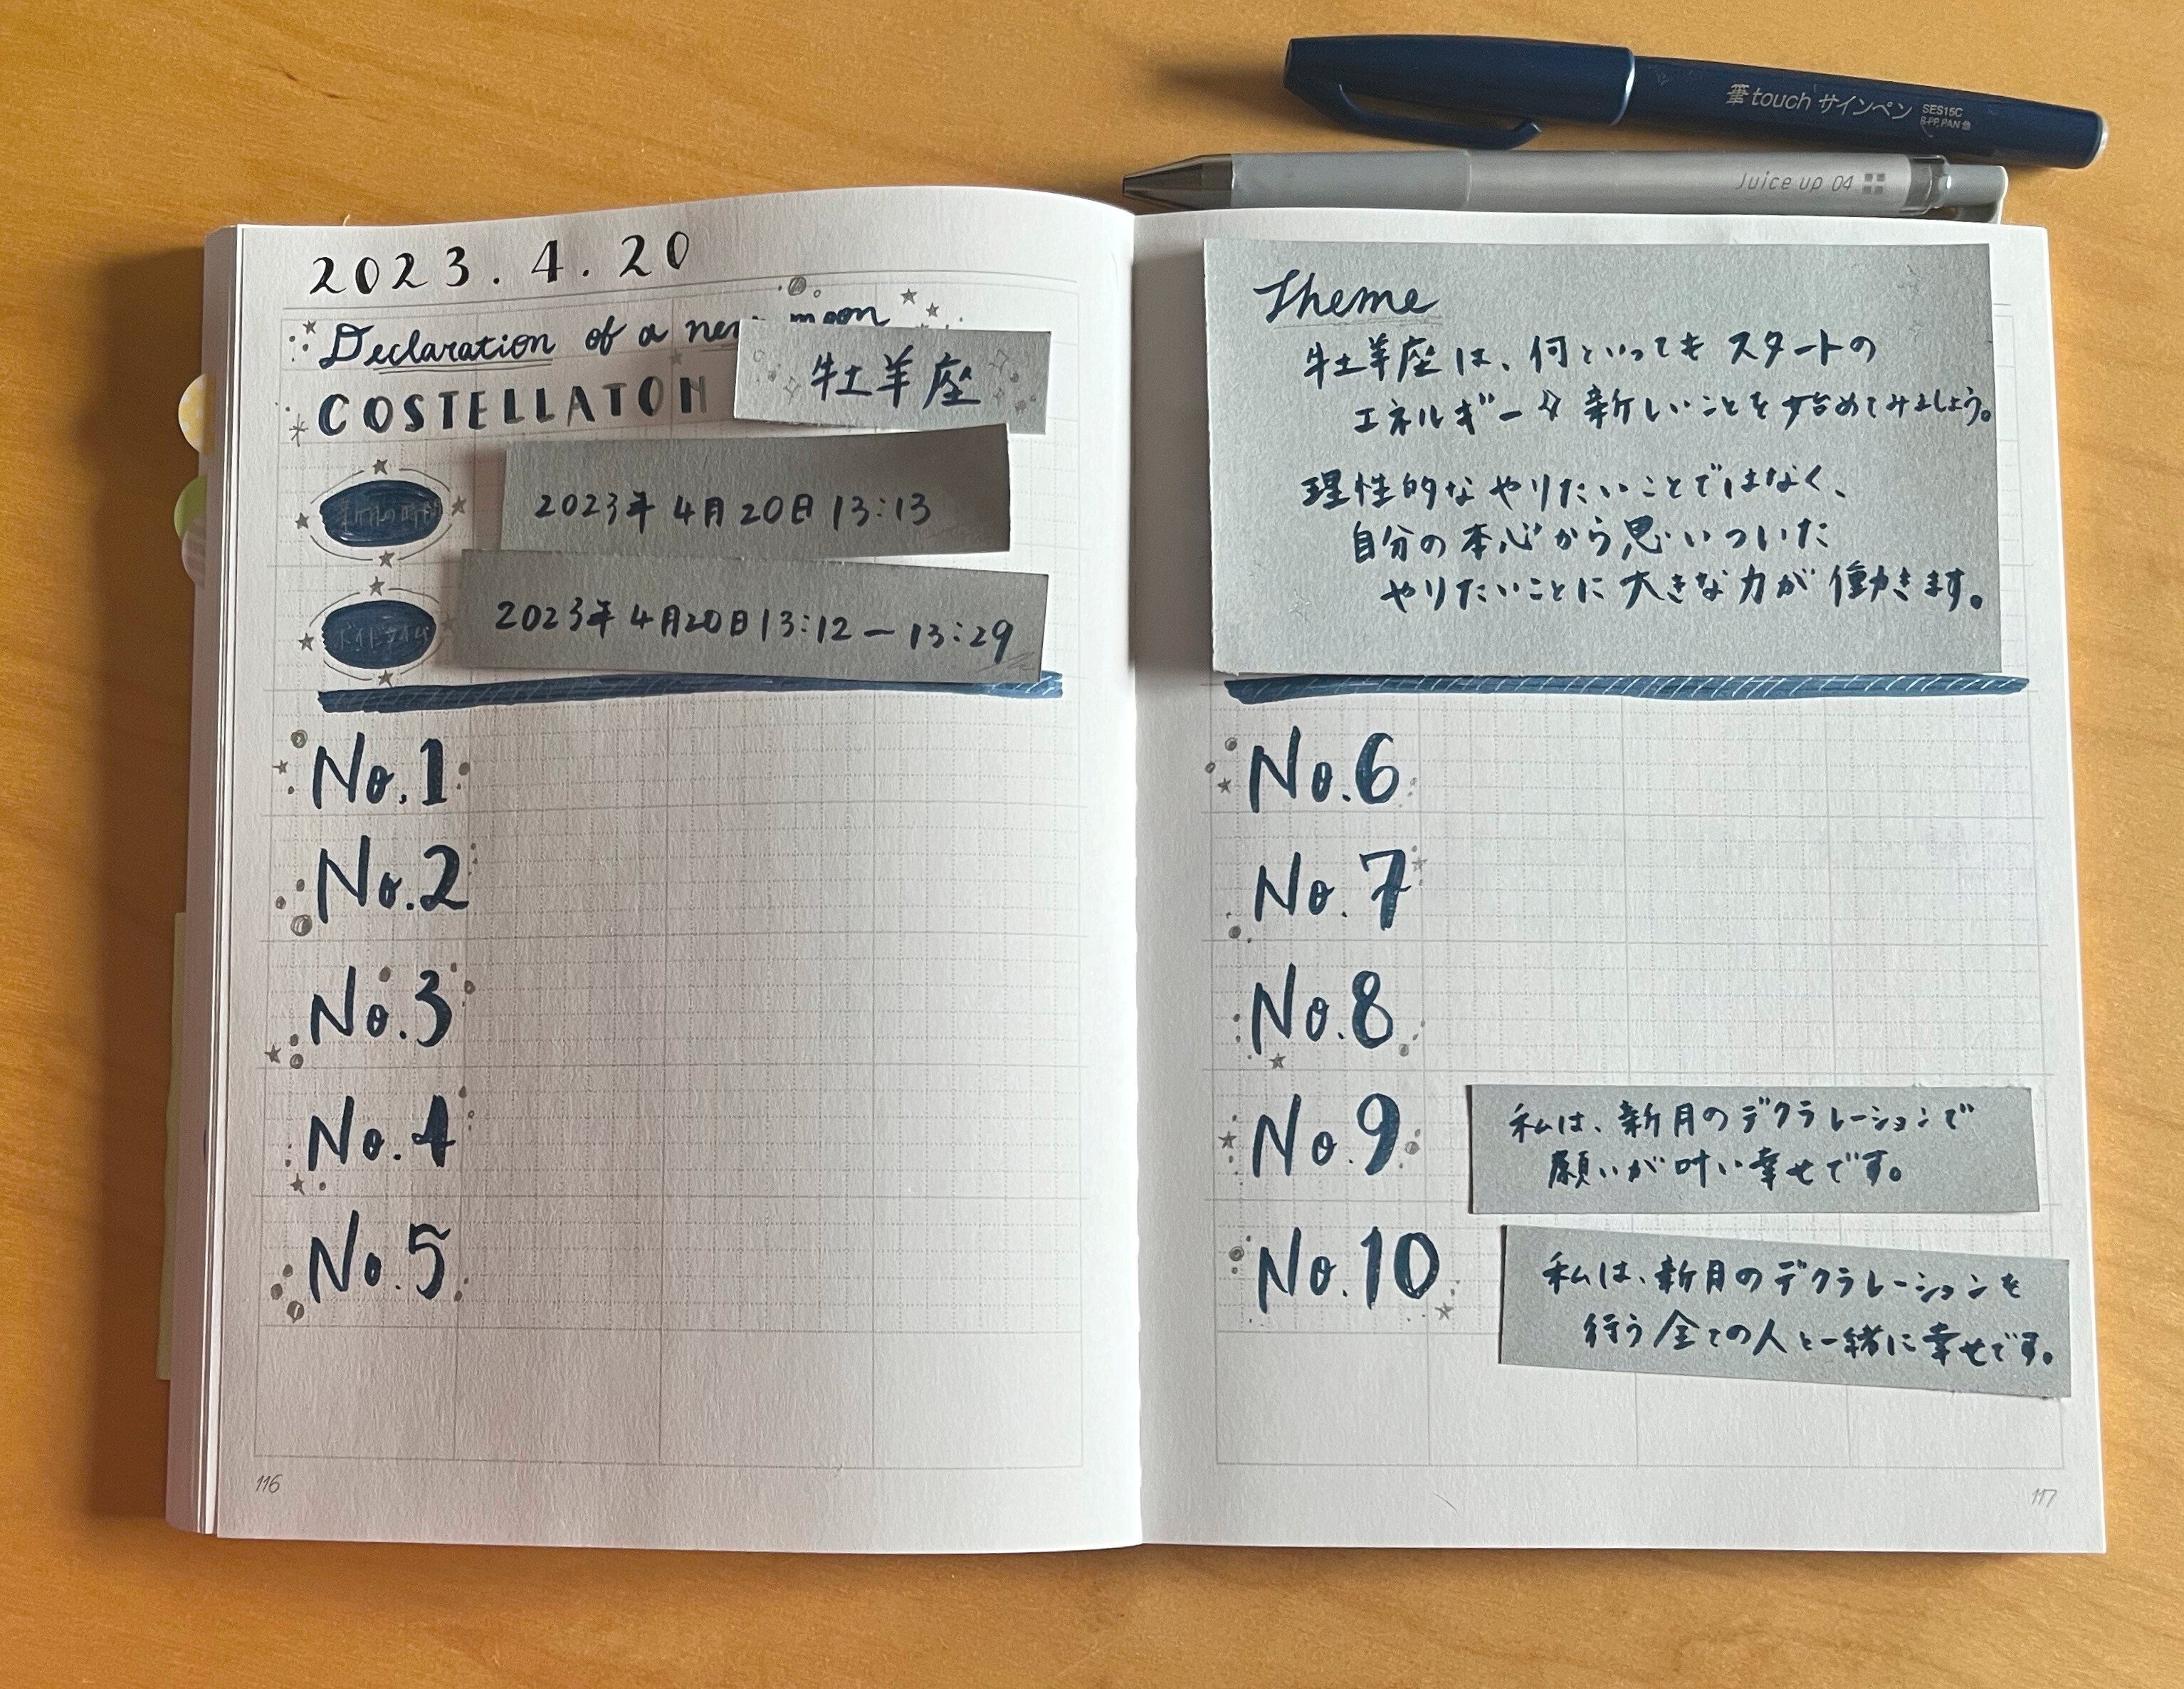 2023.4.20
Declaration of a new moon
COSTELLATON
牡羊座
新月の時間
2023年4月20日13:13
ボイドタイム
2023年4月20日13:12ー13:29
No.1
No.2
No.3
No.4
No.5
116
筆touchサインペン
SES15C
Juice up 04
Theme
牡羊座は、何といってもスタートの
エネルギー 新しいことを始めてみましょう。
理性的なやりたいことではなく、
自分の本心から思いついた
やりたいことに大きな力が働きます。
No.6
No.7
No.8
No.9
私は、新月のデクラレーションで
願いが叶い幸せです。
No.10
私は、新月のデクラレーションを
行う全ての人と一緒に幸せです。
117